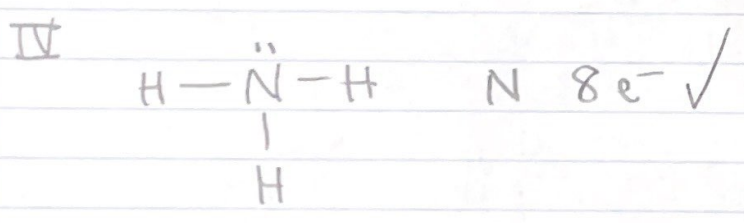 IV
H — N̈ — H N 8e⁻ ✓
|
H